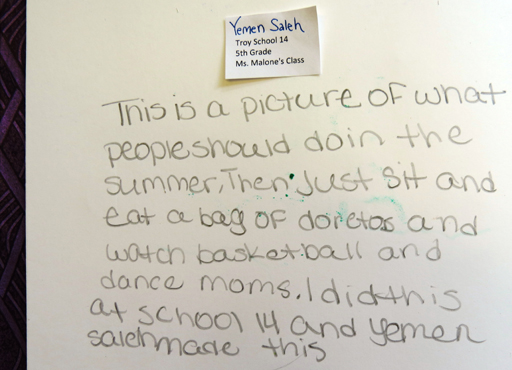 Yemen Saleh
Troy School 14
5th Grade
Ms. Malone's Class
This is a picture of what
people should do in the
summer, Then Just sit and
eat a bag of doretos and
watch basketball and
dance moms. I did this
at school 14 and yemen
saleh made this